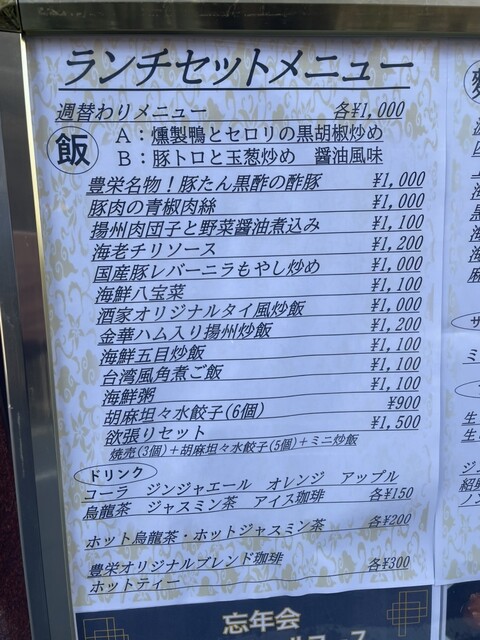 ランチセットメニュー
週替わりメニュー 各¥1,000
飯 A:燻製鴨とセロリの黒胡椒炒め
B:豚トロと玉葱炒め 醤油風味
豊栄名物!豚たん黒酢の酢豚 ¥1,000
豚肉の青椒肉絲 ¥1,000
揚州肉団子と野菜醤油煮込み ¥1,100
海老チリソース ¥1,200
国産豚レバーニラもやし炒め ¥1,000
海鮮八宝菜 ¥1,100
酒家オリジナルタイ風炒飯 ¥1,000
金華ハム入り揚州炒飯 ¥1,200
海鮮五目炒飯 ¥1,100
台湾風角煮ご飯 ¥1,100
海鮮粥 ¥1,100
胡麻坦々水餃子(6個) ¥900
欲張りセット ¥1,500
焼売(3個)+胡麻坦々水餃子(5個)+ミニ炒飯
ドリンク
コーラ ジンジャエール オレンジ アップル
烏龍茶 ジャスミン茶 アイス珈琲 各¥150
ホット烏龍茶・ホットジャスミン茶 各¥200
豊栄オリジナルブレンド珈琲 各¥300
ホットティー
忘年会